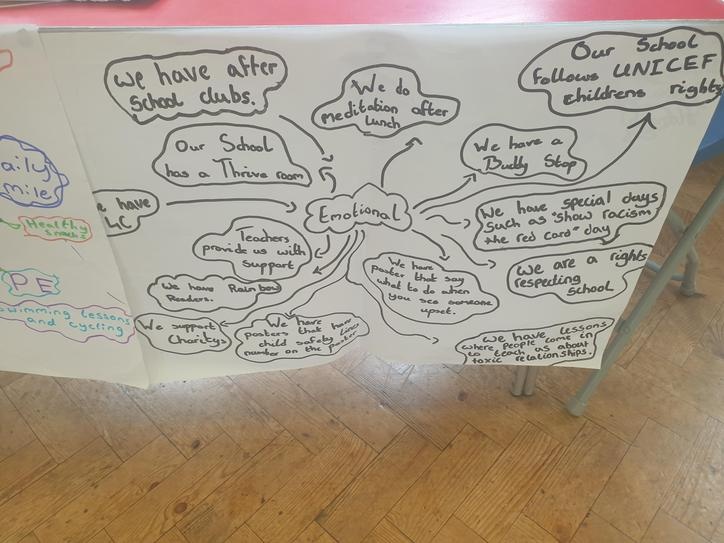 We have after
School clubs.
We do
meditation after
lunch
Our School
follows UNICEF
childrens rights
Our School
has a Thrive room
We have a
Buddy Stop
have
Emotional
We have special days
Such as "Show racism
the red card" day
Teachers
provide us with
Support
We have
poster that say
what to do when
you see someone
upset.
We are a rights
respecting
School
We have Rainbow
Readers.
We support
Charitys
We have
posters that have
child safety lines
number on the poster
We have lessons
where people come in
to teach us about
toxic relationships.
aily
mile
Healthy
snacks
PE
swimming lessons
and cycling